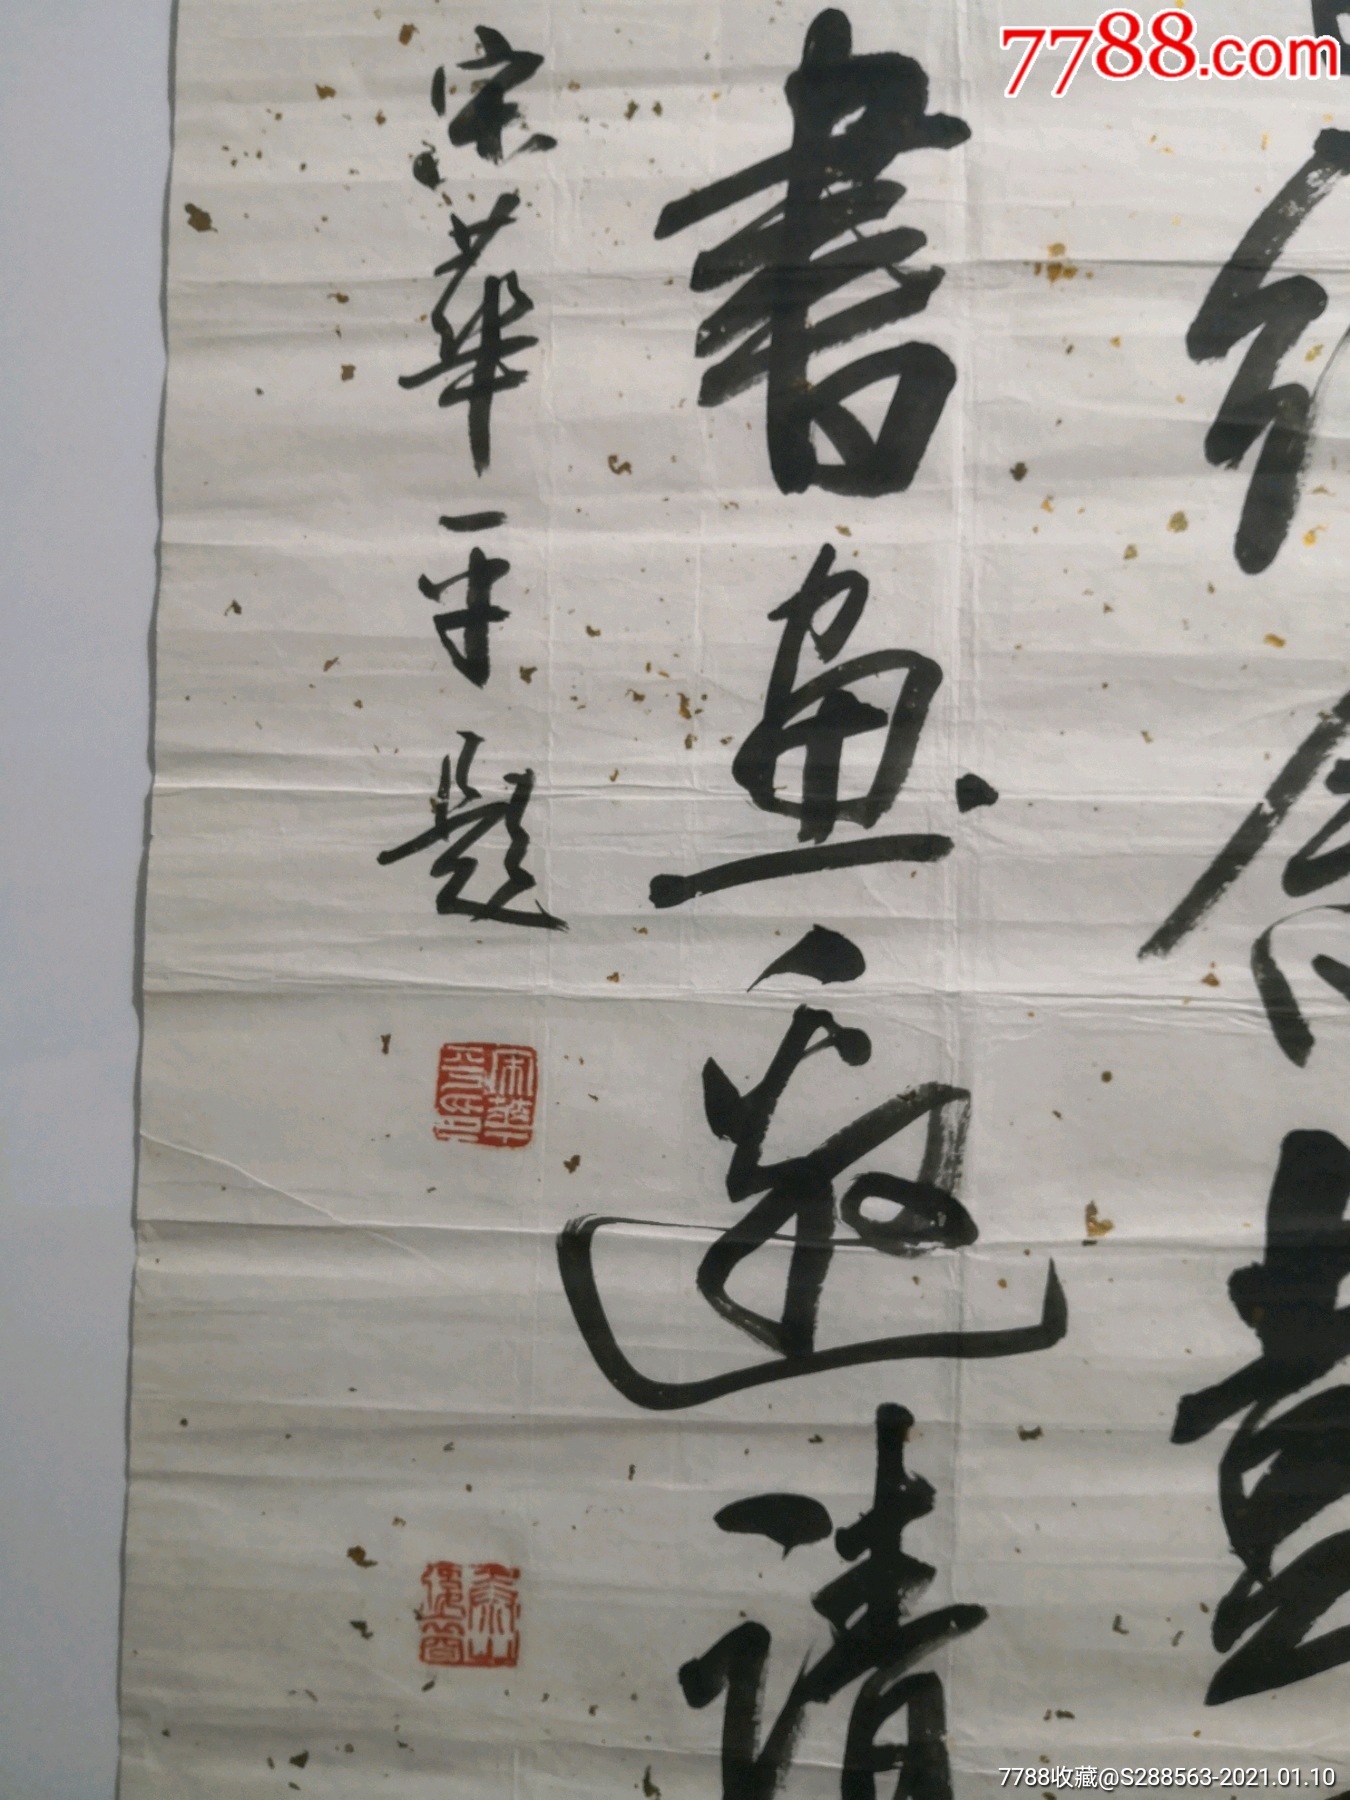 7788.com
書畫邀請
宋華平題
宋華平印
7788收藏@S288563-2021.01.10